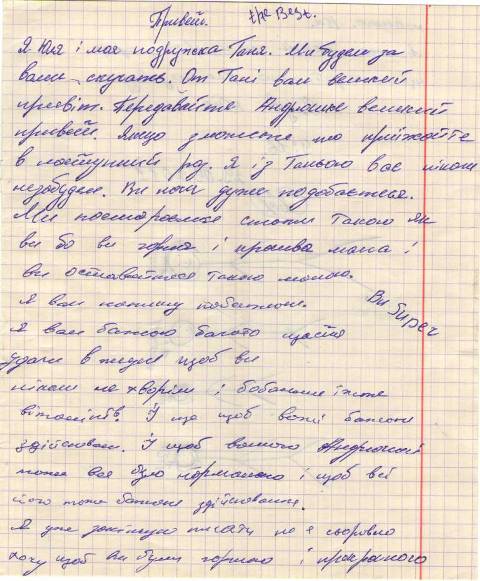 Привет. the Best.
Я Юля і моя подружка Таня. Ми будем за
вами скучать. От Тані вам великий
привіт. Передавайте Андрюшке великий
привет. Якщо зможете то приїжайте
в слідующий раз. Я із Таньою вас ніколи
незабудем. Ви нам дуже подобаєтесь.
Ми постараємся стати такою як
ви бо ви гарна і красива мама і
ви оставайтеся такою милою.
Я вам напишу побажання.
Я вам бажаю багато щастя
Ви
удачі в жизні щоб ви
ніколи не хворіли і більше їжте
вітамінів. І ще щоб ваші бажання
здійснились. І щоб вашого Андрюші
тоже все було нормально і щоб всі
його тоже бажання здійснились.
Я уже закінчую писати но я сьоравно
хочу щоб ви були гарною і прекрасною